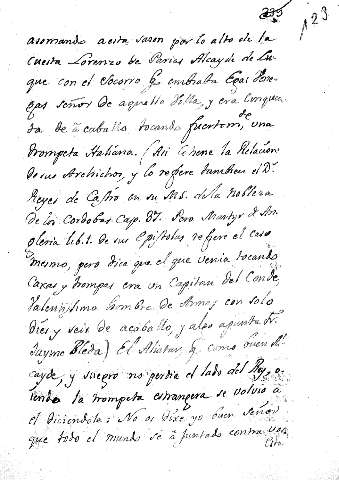 123
asomando a esta sazon por lo alto de la
cuesta Lorenzo de Parias Alcayde de Lu-
que con el Socorro q. embiaba Egas Vene-
gas señor de aquella Villa, y era Cinquen-
ta de â caballo tocando fuertem.te una
trompeta Italiana. (Asi lo tiene la Relacion
de sus Archichos, y lo refiere tambien el D.r
Reyes de Castro en su Ms. de la Nobleza
de los Cordobas Cap. 87. Pero Martyr de An-
gleria lib. 1. de sus Epistolas refiere el caso
mesmo, pero dice que el que venia tocando
Caxas, y trompas era un Capitan del Conde,
Valentissimo hombre de Armas con solo
diez y seis de acaballo, y algo apunta Fr.
Jayme Bleda) El Aliatar q. como buen Al-
cayde, y suegro no perdia el lado del Rey o-
iendo la trompeta estrangera se volvio à
el diciendole: No os dixe yo buen Señor
que todo el mundo se â juntado contra vos